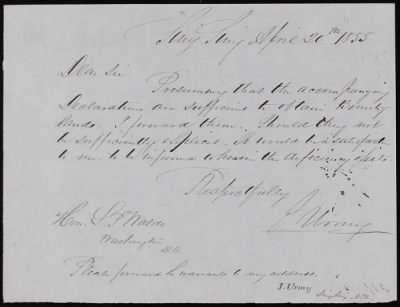 Sing Sing April 20th 1855
Dear Sir
Presuming that the accompanying
Declarations are sufficient to obtain Bounty
lands. I forward them. Should they not
be sufficiently explicit, it would be a satisfaction
to me to be informed wherein the deficiency exists.
Respectfully
J Urmy
Hon. L P Waldo
Washington
D.C.
Please forward warrants to my address.
J. Urmy